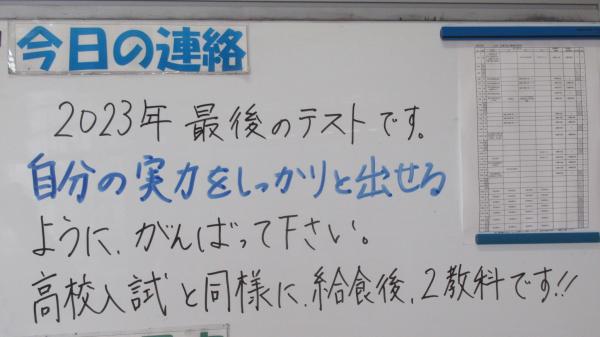 今日の連絡
2023年 最後のテストです。
自分の実力をしっかりと出せる
ように、がんばって下さい。
高校入試と同様に、給食後、2教科です!!